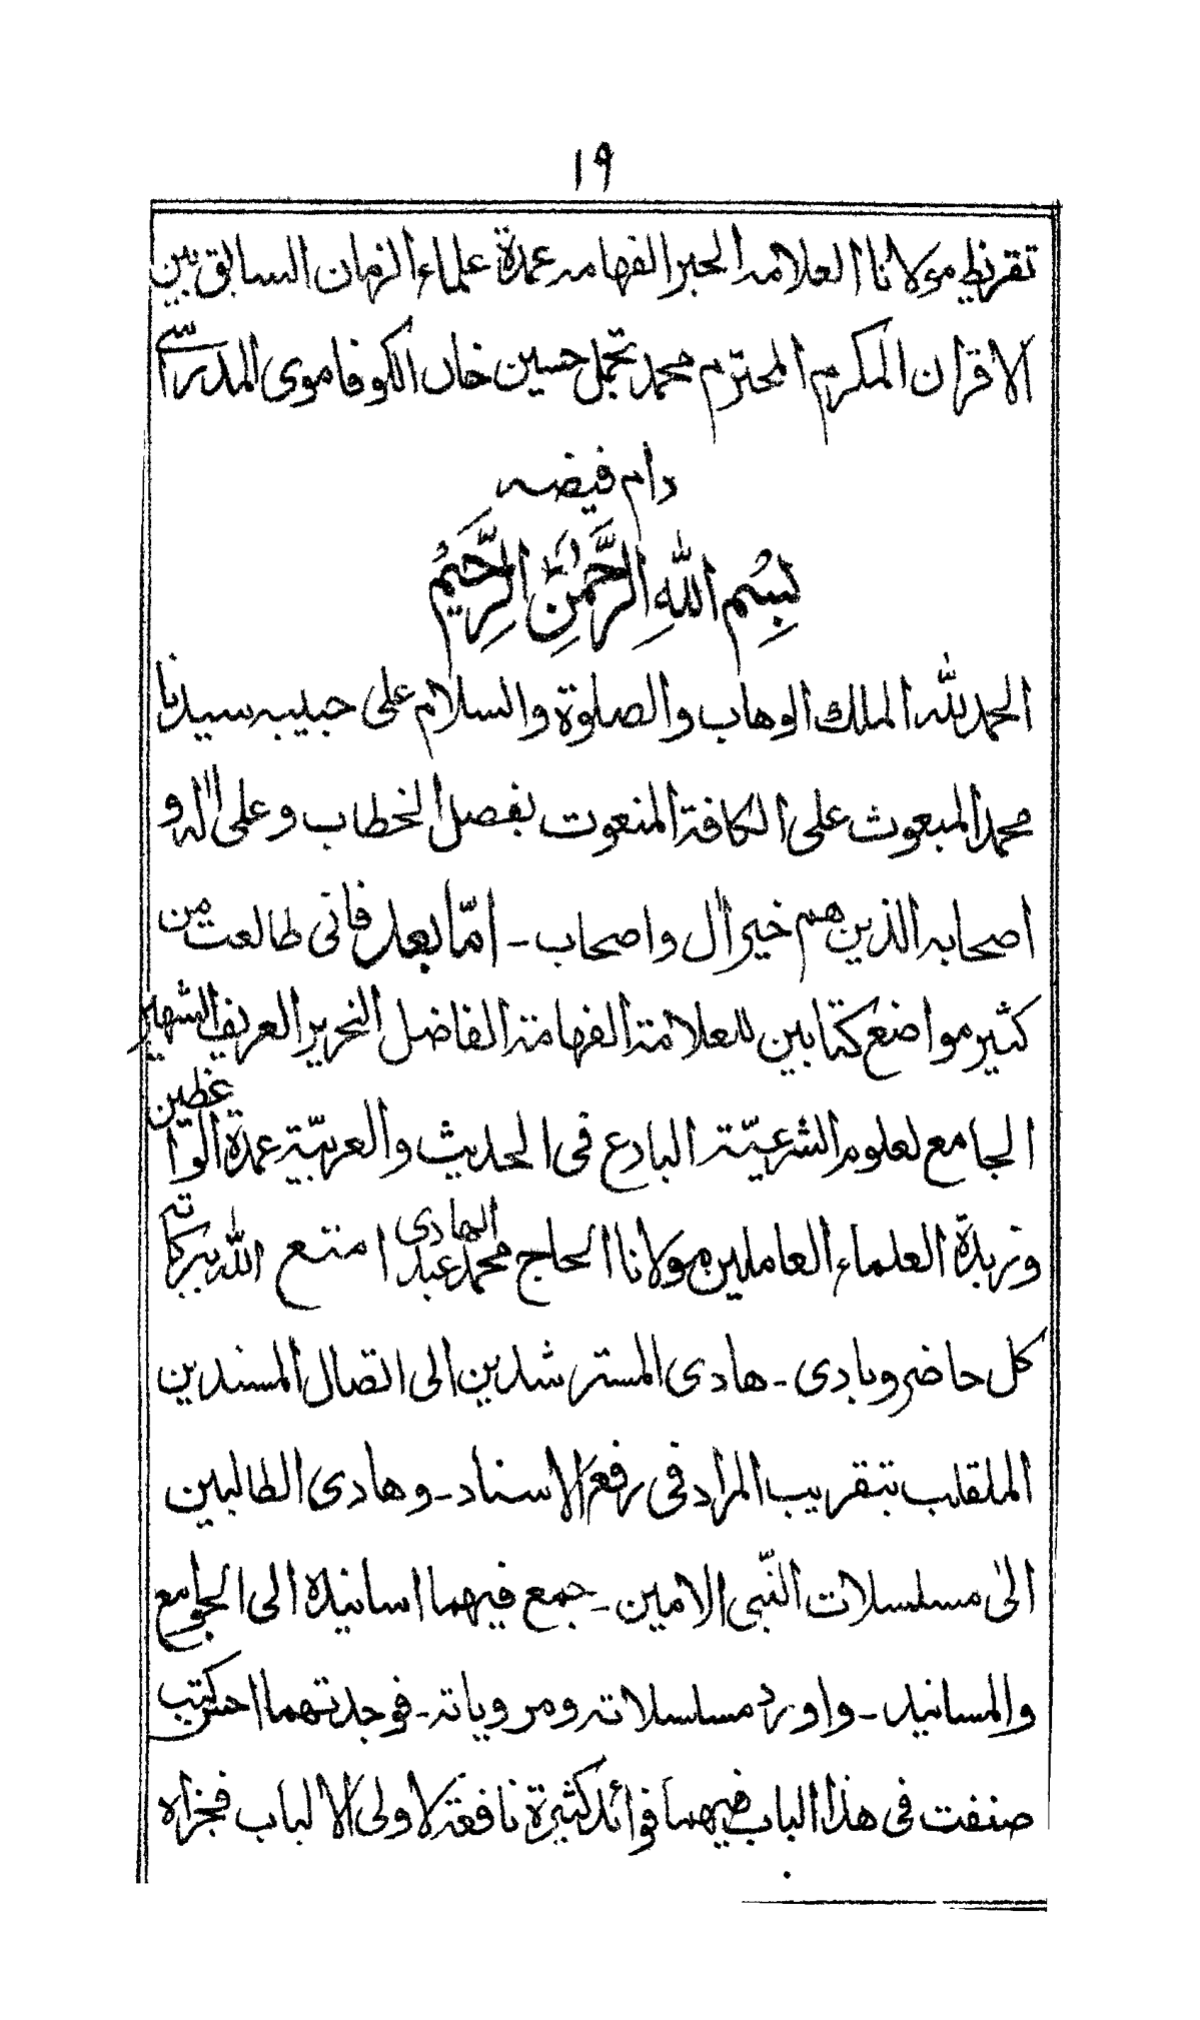 ١٩
تقريظ مولانا العلامه الحبر الفهامه عمدة علماء الزمان السابق بين
الاقران المكرم المحترم محمد تجمل حسين خان الكوفاموى المدراسى
دام فيضه
بِسْمِ اللهِ الرَّحْمٰنِ الرَّحِيْمِ
الحمد لله الملك الوهاب والصلوة والسلام على حبيبه سيدنا
محمد المبعوث على الكافة المنعوت بفصل الخطاب وعلى اله و
اصحابه الذين هم خير ال واصحاب ـ امّا بعد فانى طالعت من
كثير مواضع كتابين للعلامة الفهامة الفاضل النحرير العريف الشهير
الجامع لعلوم الشرعيّة البادع فى الحديث والعربيّة عمدة الواعظين
وزبدة العلماء العاملين مولانا الحاج محمد عبد الهادى امتع الله ببركاته
كل حاضر وبادى ـ هادى المسترشدين الى اتصال المسندين
الملقب بتقريب المراد فى رفع الاسناد ـ وهادى الطالبين
الىٰ مسلسلات النّبى الامين ـ جمع فيهما اسانيده الى الجوامع
والمسانيد ـ واورد مسلسلاته ومروياته ـ فوجدتهما احسن كتب
صنفت فى هذا الباب فيهما فوائد كثيرة نافعة لاولى الالباب فجزاه